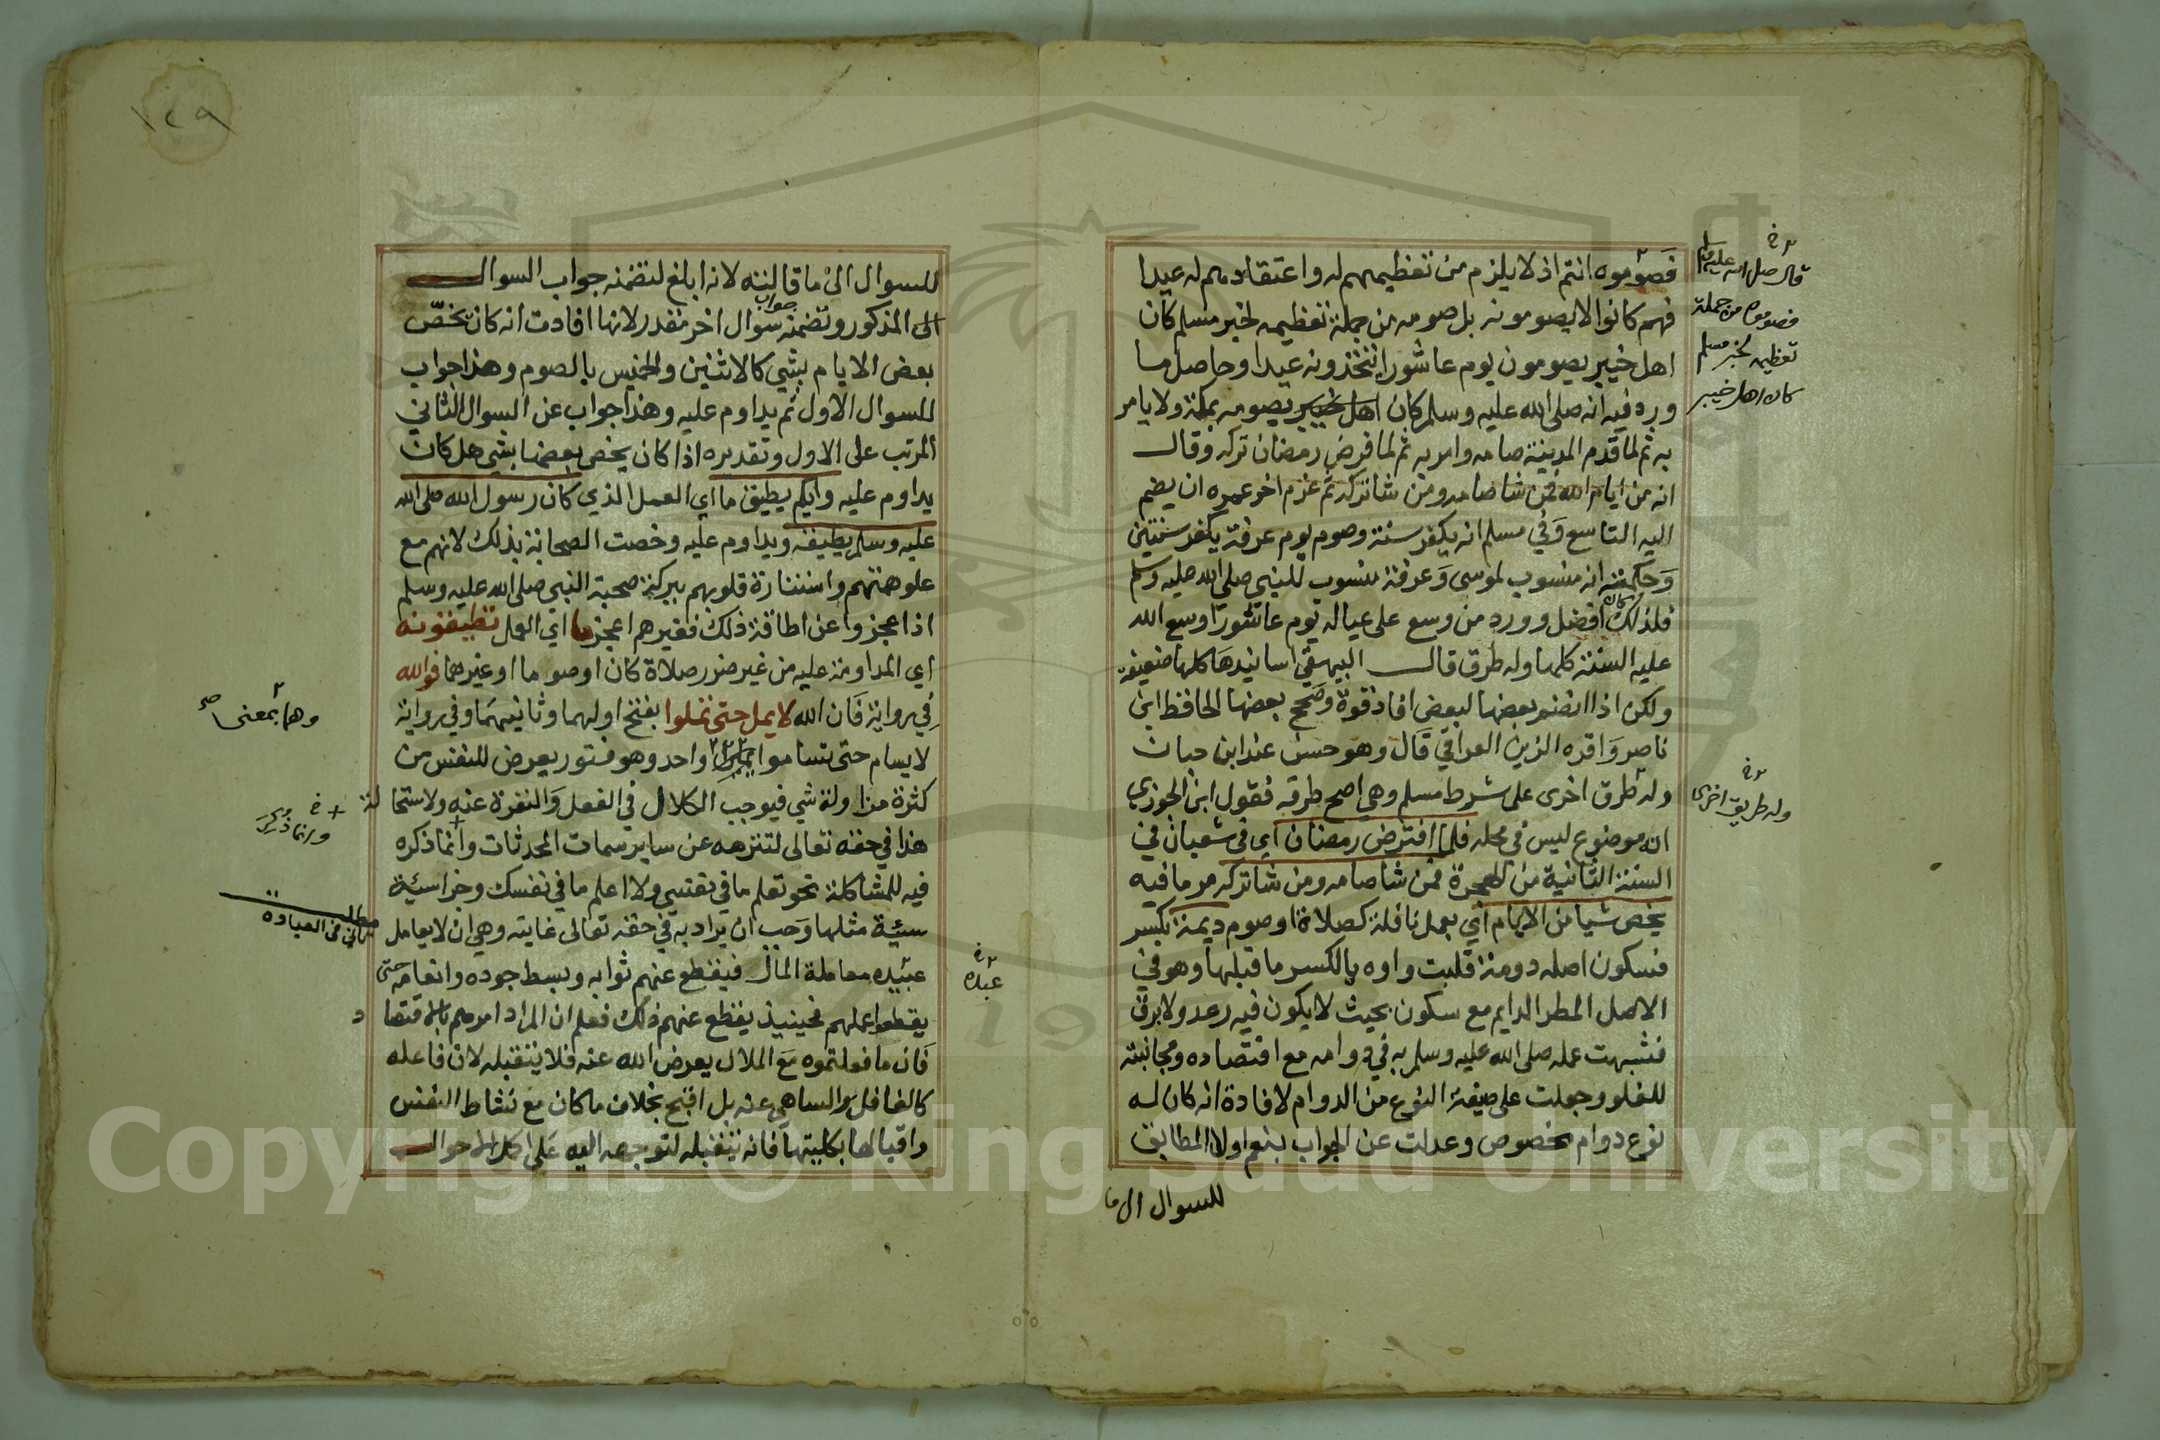 فصوموه انتم اذ لا يلزم من تعظيمهم له واعتقادهم له عيدا
فهم كانوا لا يصومونه بل صومه من جملة تعظيمه لخبر مسلم كان
اهل خيبر يصومون يوم عاشورا يتخذونه عيدا وحاصل ما
ورد فيه انه صلى الله عليه وسلم كان اهل خيبر يصومه بمكة ولا يامر
به ثم لما قدم المدينة صامه وامر به ثم لما فرض رمضان تركه وقال
انه من ايام الله فمن شا صامه ومن شا تركه ثم عزم اخر عمره ان يضم
اليه التاسع وفي مسلم انه يكفر سنة وصوم يوم عرفة يكفر سنتين
وحكمته انه منسوب لموسى وعرفة منسوب للنبي صلى الله عليه وسلم
فلذلك كان افضل وورد من وسع على عياله يوم عاشورا وسع الله
عليه السنة كلها وله طرق قال البيهقي اسانيدها كلها ضعيفة
ولكن اذا انضم بعضها لبعض افاد قوة وصحح بعضها الحافظ ابن
ناصر واقره الزين العراقي قال وهو حسن عند ابن حبان
وله طرق اخرى على شرط مسلم وهي اصح طرقه فقول ابن الجوزي
انه موضوع ليس في محله فلما افترض رمضان اي في شعبان في
السنة الثانية من الهجرة فمن شا صامه ومن شا تركه مر ما فيه
يخص شيا من الايام اي بعمل نافلة كصلاة او صوم ديمة بكسر
فسكون اصله دومة قلبت واوه يا لكسر ما قبلها وهو في
الاصل المطر الدايم مع سكون بحيث لا يكون فيه رعد ولا برق
فشبهت عمله صلى الله عليه وسلم به في دوامه مع اقتصاده ومجانبته
للغلو وجعلت على صيغة النوع من الدوام لافادة انه كان له
نوع دوام مخصوص وعدلت عن الجواب بنعم او لا المطابق
للسوال الى ما
قال صلى الله عليه وسلم
فصوموه من جملة
تعظيمه لخبر مسلم
كان اهل خيبر
وله طريق اخرى
للسوال الى ما قالته لانه ابلغ لتضمنه جواب السوال
الى المذكور وتضمنه جواب سوال اخر مقدر لانها افادت انه كان يخص
بعض الايام بشي كالاثنين والخميس بالصوم وهذا جواب
للسوال الاول ثم يداوم عليه وهذا جواب عن السوال الثاني
المرتب على الاول وتقديره اذا كان يخص بعضها بشي هل كان
يداوم عليه وايكم يطيق ما اي العمل الذي كان رسول الله صلى الله
عليه وسلم يطيقه ويداوم عليه وخصت الصحابة بذلك لانهم مع
علو همتهم واستنارة قلوبهم ببركة صحبة النبي صلى الله عليه وسلم
اذا عجزوا عن اطاقة ذلك فغيرهم اعجز ما اي العمل تطيقونه
اي المداومة عليه من غير ضرر صلاة كان او صوما او غيرهما فوالله
في رواية فان الله لا يمل حتى تملوا بفتح اولهما وثانيهما وفي رواية
لا يسام حتى تساموا واحد وهو فتور يعرض للنفس من
كثرة مزاولة شي فيوجب الكلال في الفعل والنفرة عنه ولاستحالة
هذا في حقه تعالى لتنزهه عن ساير سمات المحدثات وانما ذكره
فيه للمشاكلة نحو تعلم ما في نفسي ولا اعلم ما في نفسك وجزا سيئة
سيئة مثلها وجب ان يراد به في حقه تعالى غايته وهي ان لا يعامل
عبيده معاملة المال فيقطع عنهم ثوابه وبسط جوده وانعامه حتى
يقطعوا عملهم فحينيذ يقطع عنهم ذلك فعلم ان المراد امرهم بالاقتصاد
فان ما فعلتموه مع الملال يعرض الله عنه فلا يتقبله لان فاعله
كالغافل والساهي عنه بل اقبح بخلاف ما كان مع نشاط النفس
واقبالها بكليتها فانه يتقبله لتوجهه اليه على اكمل الاحوال
وهما بمعنى صح
وانما ذكر
مطلب
في العبادة
عبده
١٢٩
Copyright © King Saud University